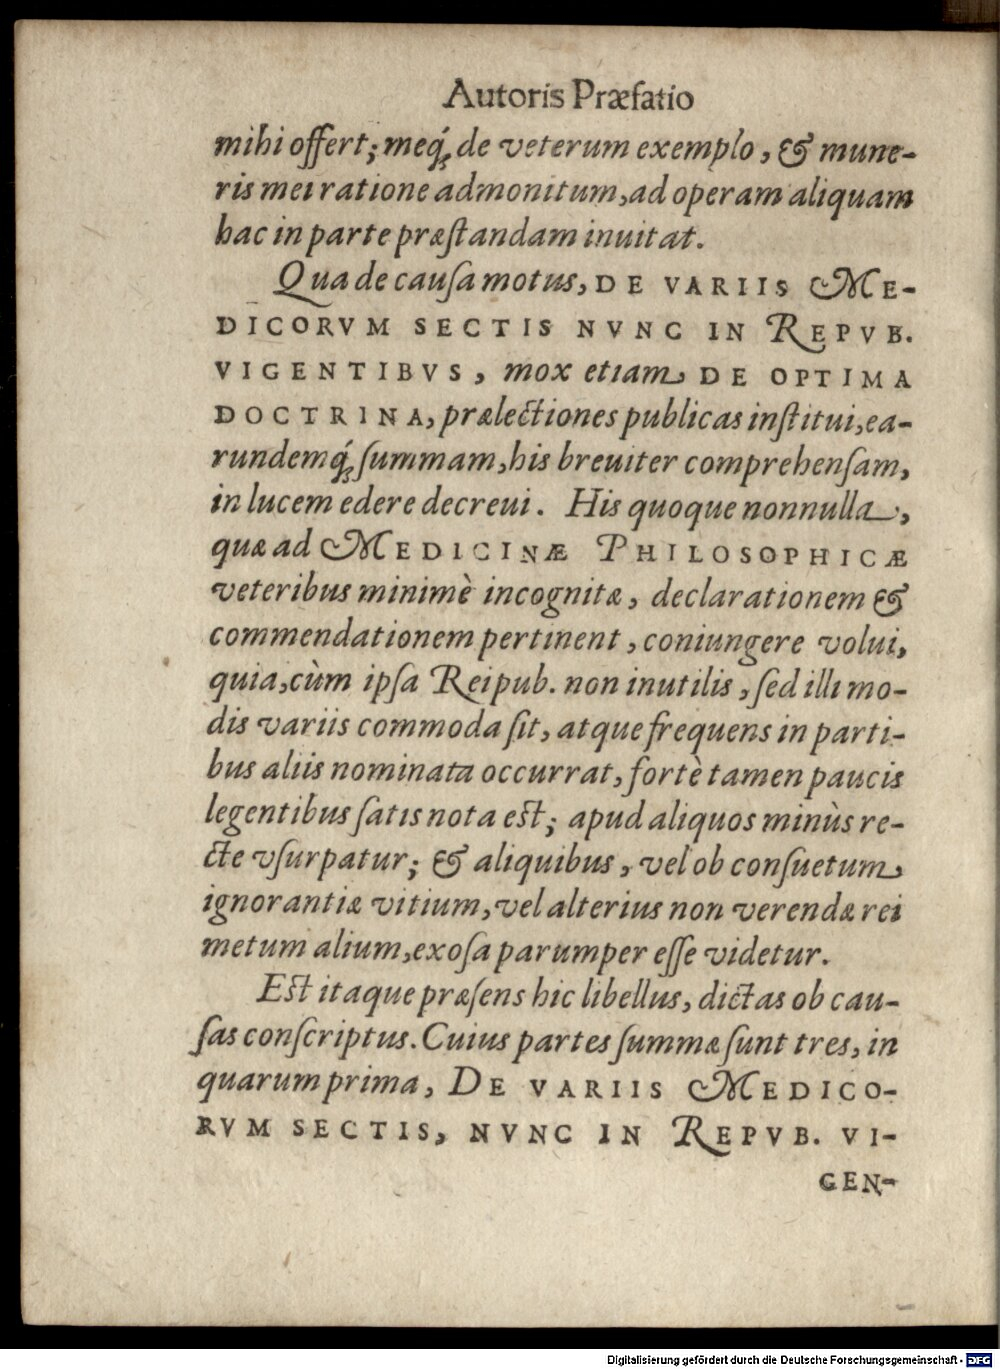 Autoris Præfatio
mihi offert; meq́; de veterum exemplo, & mune-
ris mei ratione admonitum, ad operam aliquam
hac in parte præstandam inuitat.
Qua de causa motus, DE VARIIS ME-
DICORVM SECTIS NVNC IN REPVB.
VIGENTIBVS, mox etiam DE OPTIMA
DOCTRINA, prælectiones publicas institui, ea-
rundemq́; summam, his breuiter comprehensam,
in lucem edere decreui. His quoque nonnulla,
quæ ad MEDICINÆ PHILOSOPHICÆ
veteribus minimè incognitæ, declarationem &
commendationem pertinent, coniungere volui,
quia, cùm ipsa Reipub. non inutilis, sed illi mo-
dis variis commoda sit, atque frequens in parti-
bus aliis nominata occurrat, fortè tamen paucis
legentibus satis nota est; apud aliquos minùs re-
cte vsurpatur; & aliquibus, vel ob consuetum
ignorantiæ vitium, vel alterius non verendæ rei
metum alium, exosa parumper esse videtur.
Est itaque præsens hic libellus, dictas ob cau-
sas conscriptus. Cuius partes summæ sunt tres, in
quarum prima, DE VARIIS MEDICO-
RVM SECTIS, NVNC IN REPVB. VI-
GEN-
Digitalisierung gefördert durch die Deutsche Forschungsgemeinschaft - DFG